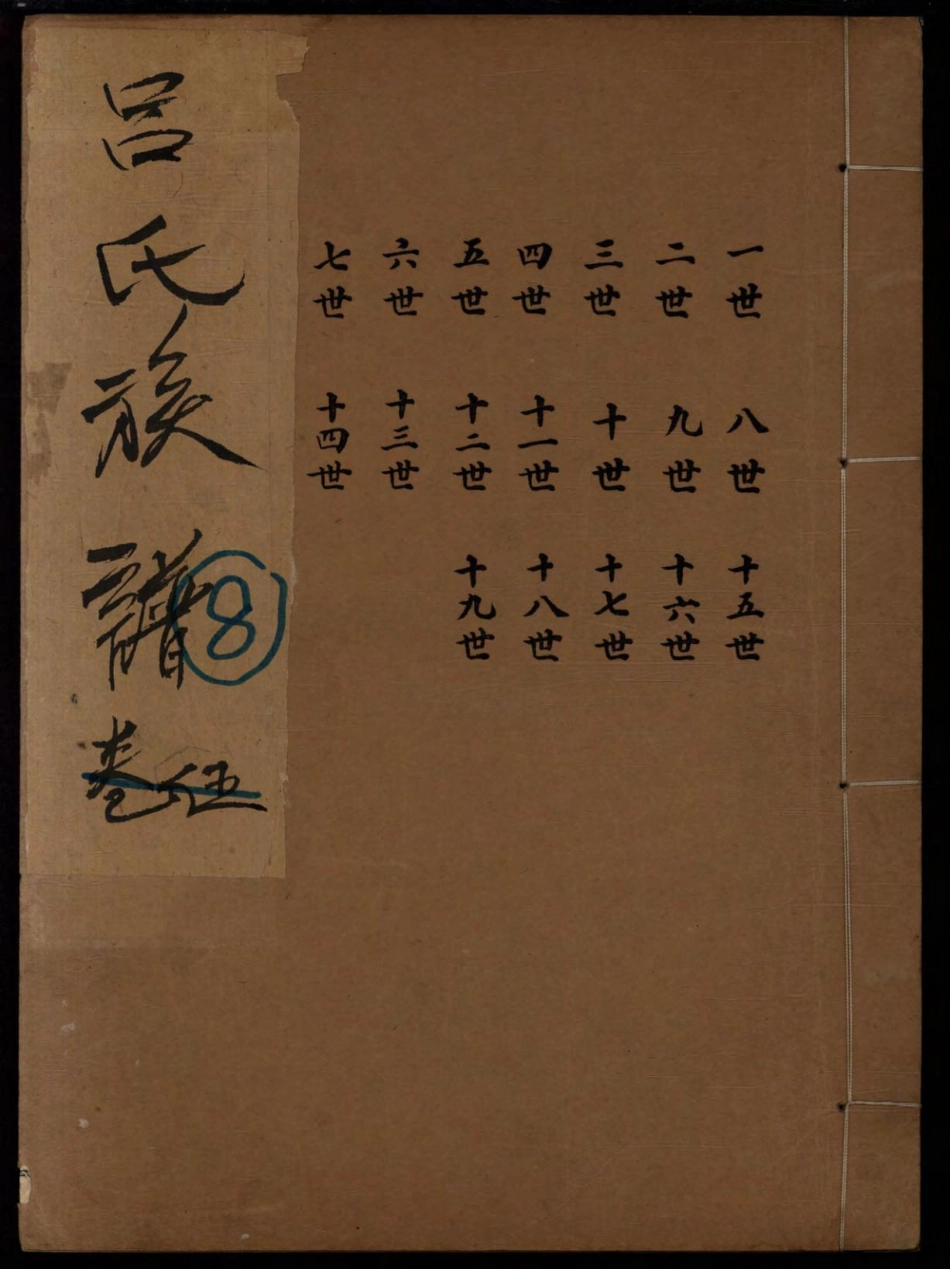 一世
二世
三世
四世
五世
六世
七世
八世
九世
十世
十一世
十二世
十三世
十四世
十五世
十六世
十七世
十八世
十九世
呂氏族譜
8
卷伍